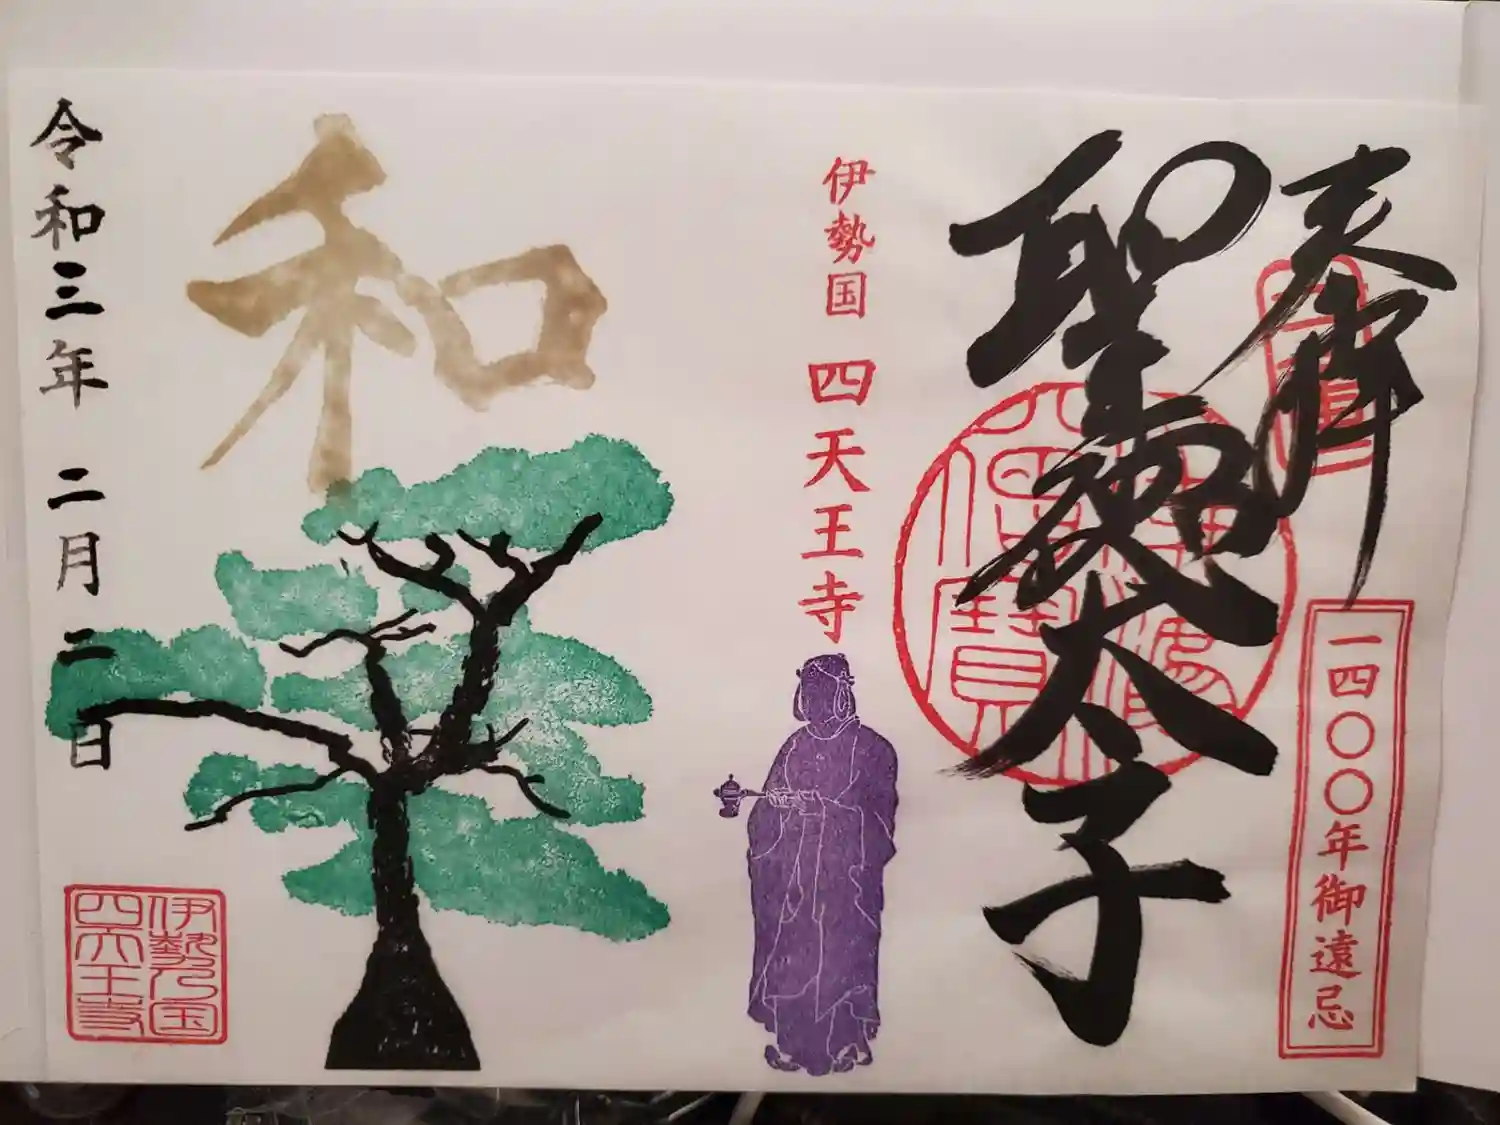 奉拝
一四〇〇年御遠忌
聖徳太子
伊勢国 四天王寺
和
令和三年 二月 二日
伊勢乃国
四天王寺